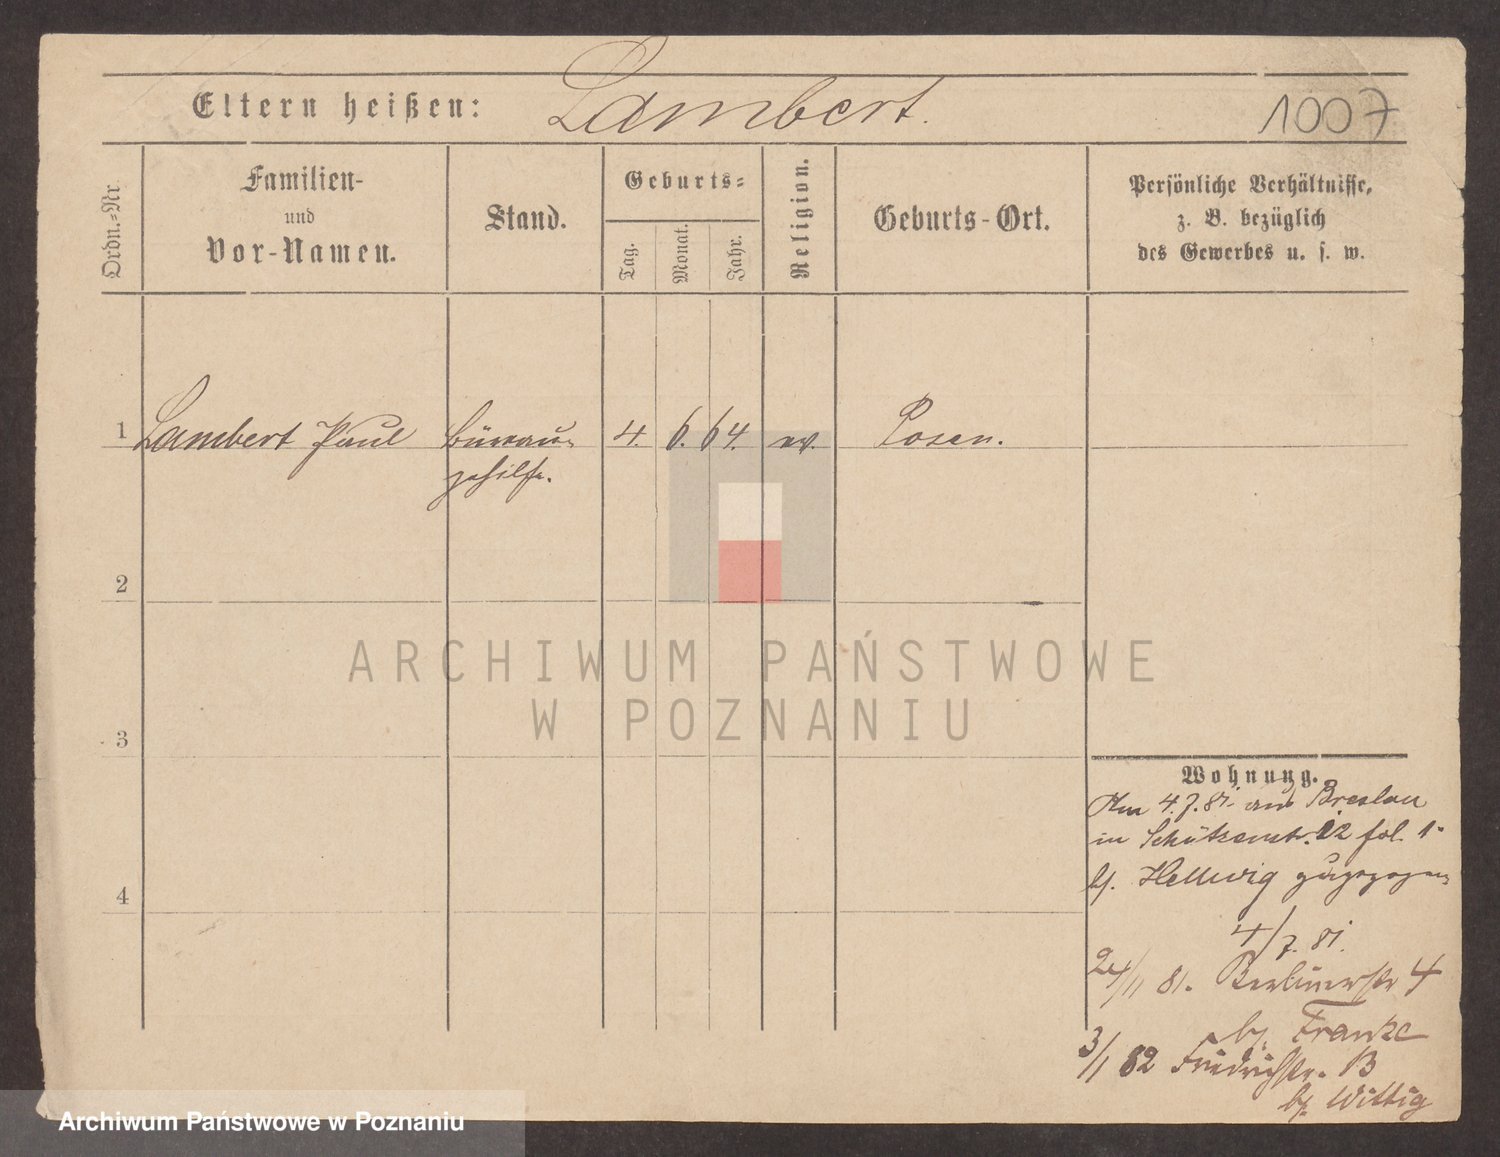 Eltern heißen: Lambert. 1007
Ordn.-Nr.
Familien-
und
Vor-Namen.
Stand.
Geburts-
Tag.
Monat.
Jahr.
Religion.
Geburts-Ort.
Persönliche Verhältnisse,
z. B. bezüglich
des Gewerbes u. s. w.
1 Lambert Paul Büreau- 4. 6. 64. ev. Posen.
gehilfe.
2
3
4
ARCHIWUM PAŃSTWOWE
W POZNANIU
Wohnung.
Am 4.7.81. aus Breslau
in Schützenstr. 22 fol. 1
bj. Hellwig zugezogen
4/7. 81.
24/11 81. Berlinerstr 4
bj. Franke
3/1 82 Friedrichstr. B
bj. Wittig
Archiwum Państwowe w Poznaniu